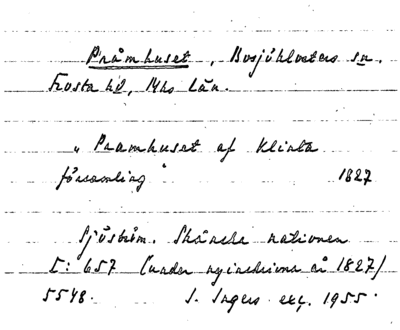 Pråmhuset, Bosjöklosters sn.
Frosta hd, Mhs län.
"Pramhuset af Klinta
församling" 1827
Sjöström. Skånska nationen
I: 657 (under nyinskrivna år 1827)
5548. I. Ingers exc. 1955.